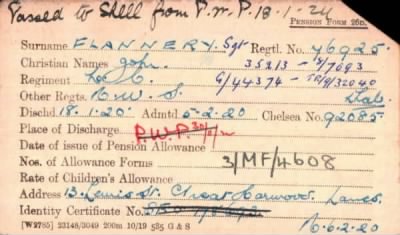 Passed to Shell from P.W.P. 18-1-24
PENSION FORM 26n.
Surname FLANNERY. Sgt Regtl. No. 46925.
Christian Names John. 35213 - S/7693
Regiment G/44374 - TR/9/32040
Other Regts. R.W.S. Lab.
Dischd 18.1.20. Admtd 5-2-20 Chelsea No. 92085.
Place of Discharge P.W.P.
Date of issue of Pension Allowance
Nos. of Allowance Forms 3/MF/4608
Rate of Children's Allowance
Address 13. Lewis St. Great Harwood. Lancs.
Identity Certificate No.
[W2785] 23148/3049 200m 10/19 585 G & S
6.2.20